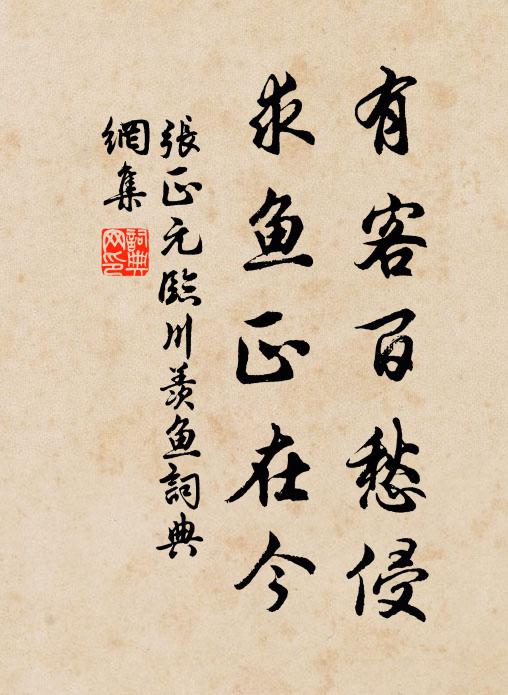 有客百愁侵
求鱼正在今
張正元臨川羨鱼詞典
網集
詞典網印